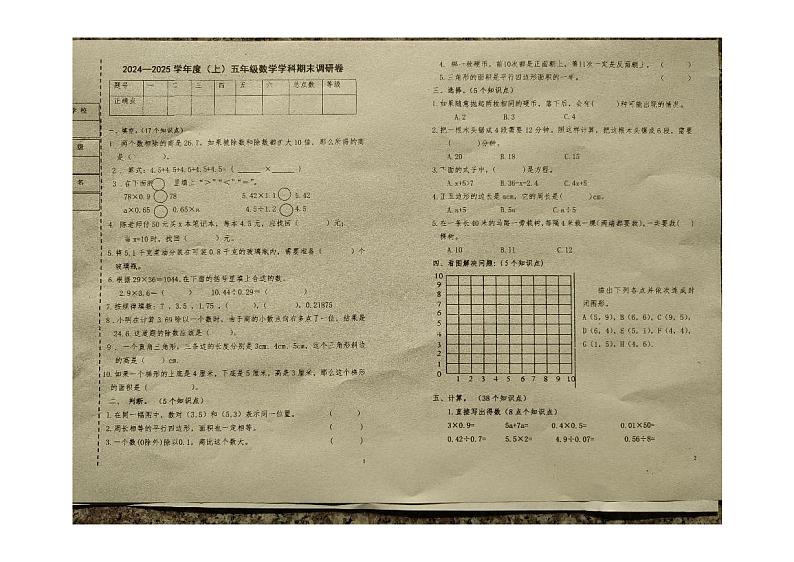 学校
级
名
2024—2025学年度（上）五年级数学学科期末调研卷
题号 一 二 三 四 五 六 总点数 等级
正确点
一、填空。（17个知识点）
1. 两个数相除的商是26.7，如果被除数和除数都扩大10倍，那么所得的商
是（ ）。
2. 算式：4.5+4.5+4.5+4.5+4.5=（ ____×____ ）
3. 在下面的○里填上“＞”“＜”“＝”。
78×0.9○78 5.42×1.1○5.42
a×0.65○0.65×a 4.5÷1.2○4.5
4. 陈老师付50元买x本笔记本，每本4.5元，应找回（ ）元；
当x=10时，找回（ ）元。
5.将5.1千克菜油分装在可装0.8千克的玻璃瓶内，需要准备（ ）个
玻璃瓶。
6.根据29×36=1044,在下面的括号里填上合适的数。
2.9×3.6=（ ） 10.44÷0.29=（ ）
7.按规律填数：7，3.5，1.75，（ ），（ ），0.21875
8.小明在计算3.69除以一个数时，由于商的小数点向右多点了一位，结果是
24.6.这道题的除数应该是（ ）。
9. 一个直角三角形，三条边的长度分别是3cm、4cm、5cm，这个三角形斜边
的高是（ ）cm。
10.如果一个梯形的上底是4厘米，下底是5厘米，高是3厘米，那么这个梯形
的面积是（ ）。
二、判断。（5个知识点）
1.在同一幅图中，数对（3,5）和（5,3）表示同一位置。（ ）
2.周长相等的平行四边形，面积也一定相等。（ ）
3.一个数(0除外)除以0.1，商比这个数大。（ ）
1
4. 掷一枚硬币，前10次都是正面朝上，第11次一定是反面朝上。（ ）
5.三角形的面积是平行四边形面积的一半。（ ）
三、选择。（5个知识点）
1.如果随意抛起两枚相同的硬币，落下后，公有（ ）种可能出现的情况。
A.2 B.3 C.4
2.把一根木头锯成4段需要12分钟。照这样计算，把这根木头锯成6段，需要
（ ）分钟。
A.20 B.18 C.15
3.下面的式子中，（ ）是方程。
A.x+5>7 B.36-x=2.4 C.4x+5
4.正五边形的边长是acm，它的周长是( )cm。
A.a+5 B.5a C.a÷5
5.在一条长40米的马路一旁栽树，每隔4米栽一棵（两端都要栽），一共要栽（ ）
棵树。
A.10 B.11 C.12
四、看图解决问题：（5个知识点）
10
9
8
7
6
5
4
3
2
1
0 1 2 3 4 5 6 7 8 9 10
描出下列各点并依次连成封
闭图形。
A（5，9），B（6，6），C（9，5），
D（6，4），E（5，1），F（4，4），
G（1，5），H（4，6）.
五、计算。（38个知识点）
1.直接写出得数（8点个知识点）
3×0.9= 5a+7a= 0.4×0.5= 0.01×50=
0.42÷0.7= 5.5×2= 4.9÷0.07= 0.56÷8=
2